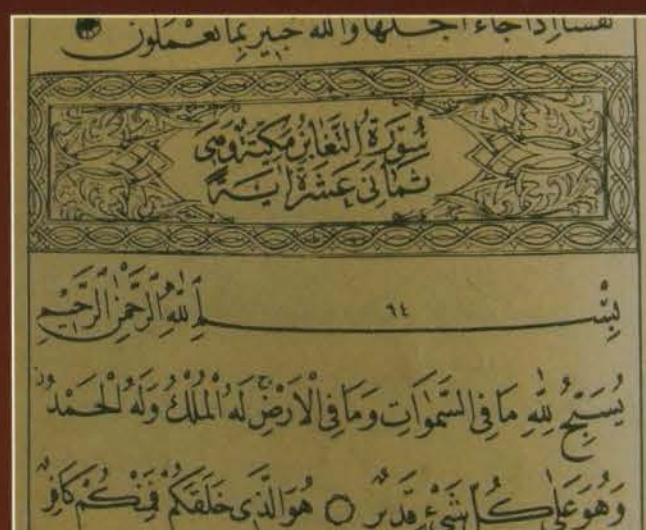 نَفْسًا اِذَا جَاءَ اَجَلُهَا وَاللّٰهُ خَبِيرٌ بِمَا تَعْمَلُونَ
سُورَةُ التَّغَابُنِ مَكِّيَّةٌ وَهِيَ
ثَمَانِىَ عَشْرَةَ اٰيَةً
بِسْمِ اللّٰهِ الرَّحْمٰنِ الرَّحِيمِ
٦٤
يُسَبِّحُ لِلّٰهِ مَا فِى السَّمٰوَاتِ وَمَا فِى الْاَرْضِۚ لَهُ الْمُلْكُ وَلَهُ الْحَمْدُۘ
وَهُوَ عَلٰى كُلِّ شَىْءٍ قَدِيرٌ ۝ هُوَ الَّذِى خَلَقَكُمْ فَمِنْكُمْ كَافِرٌ